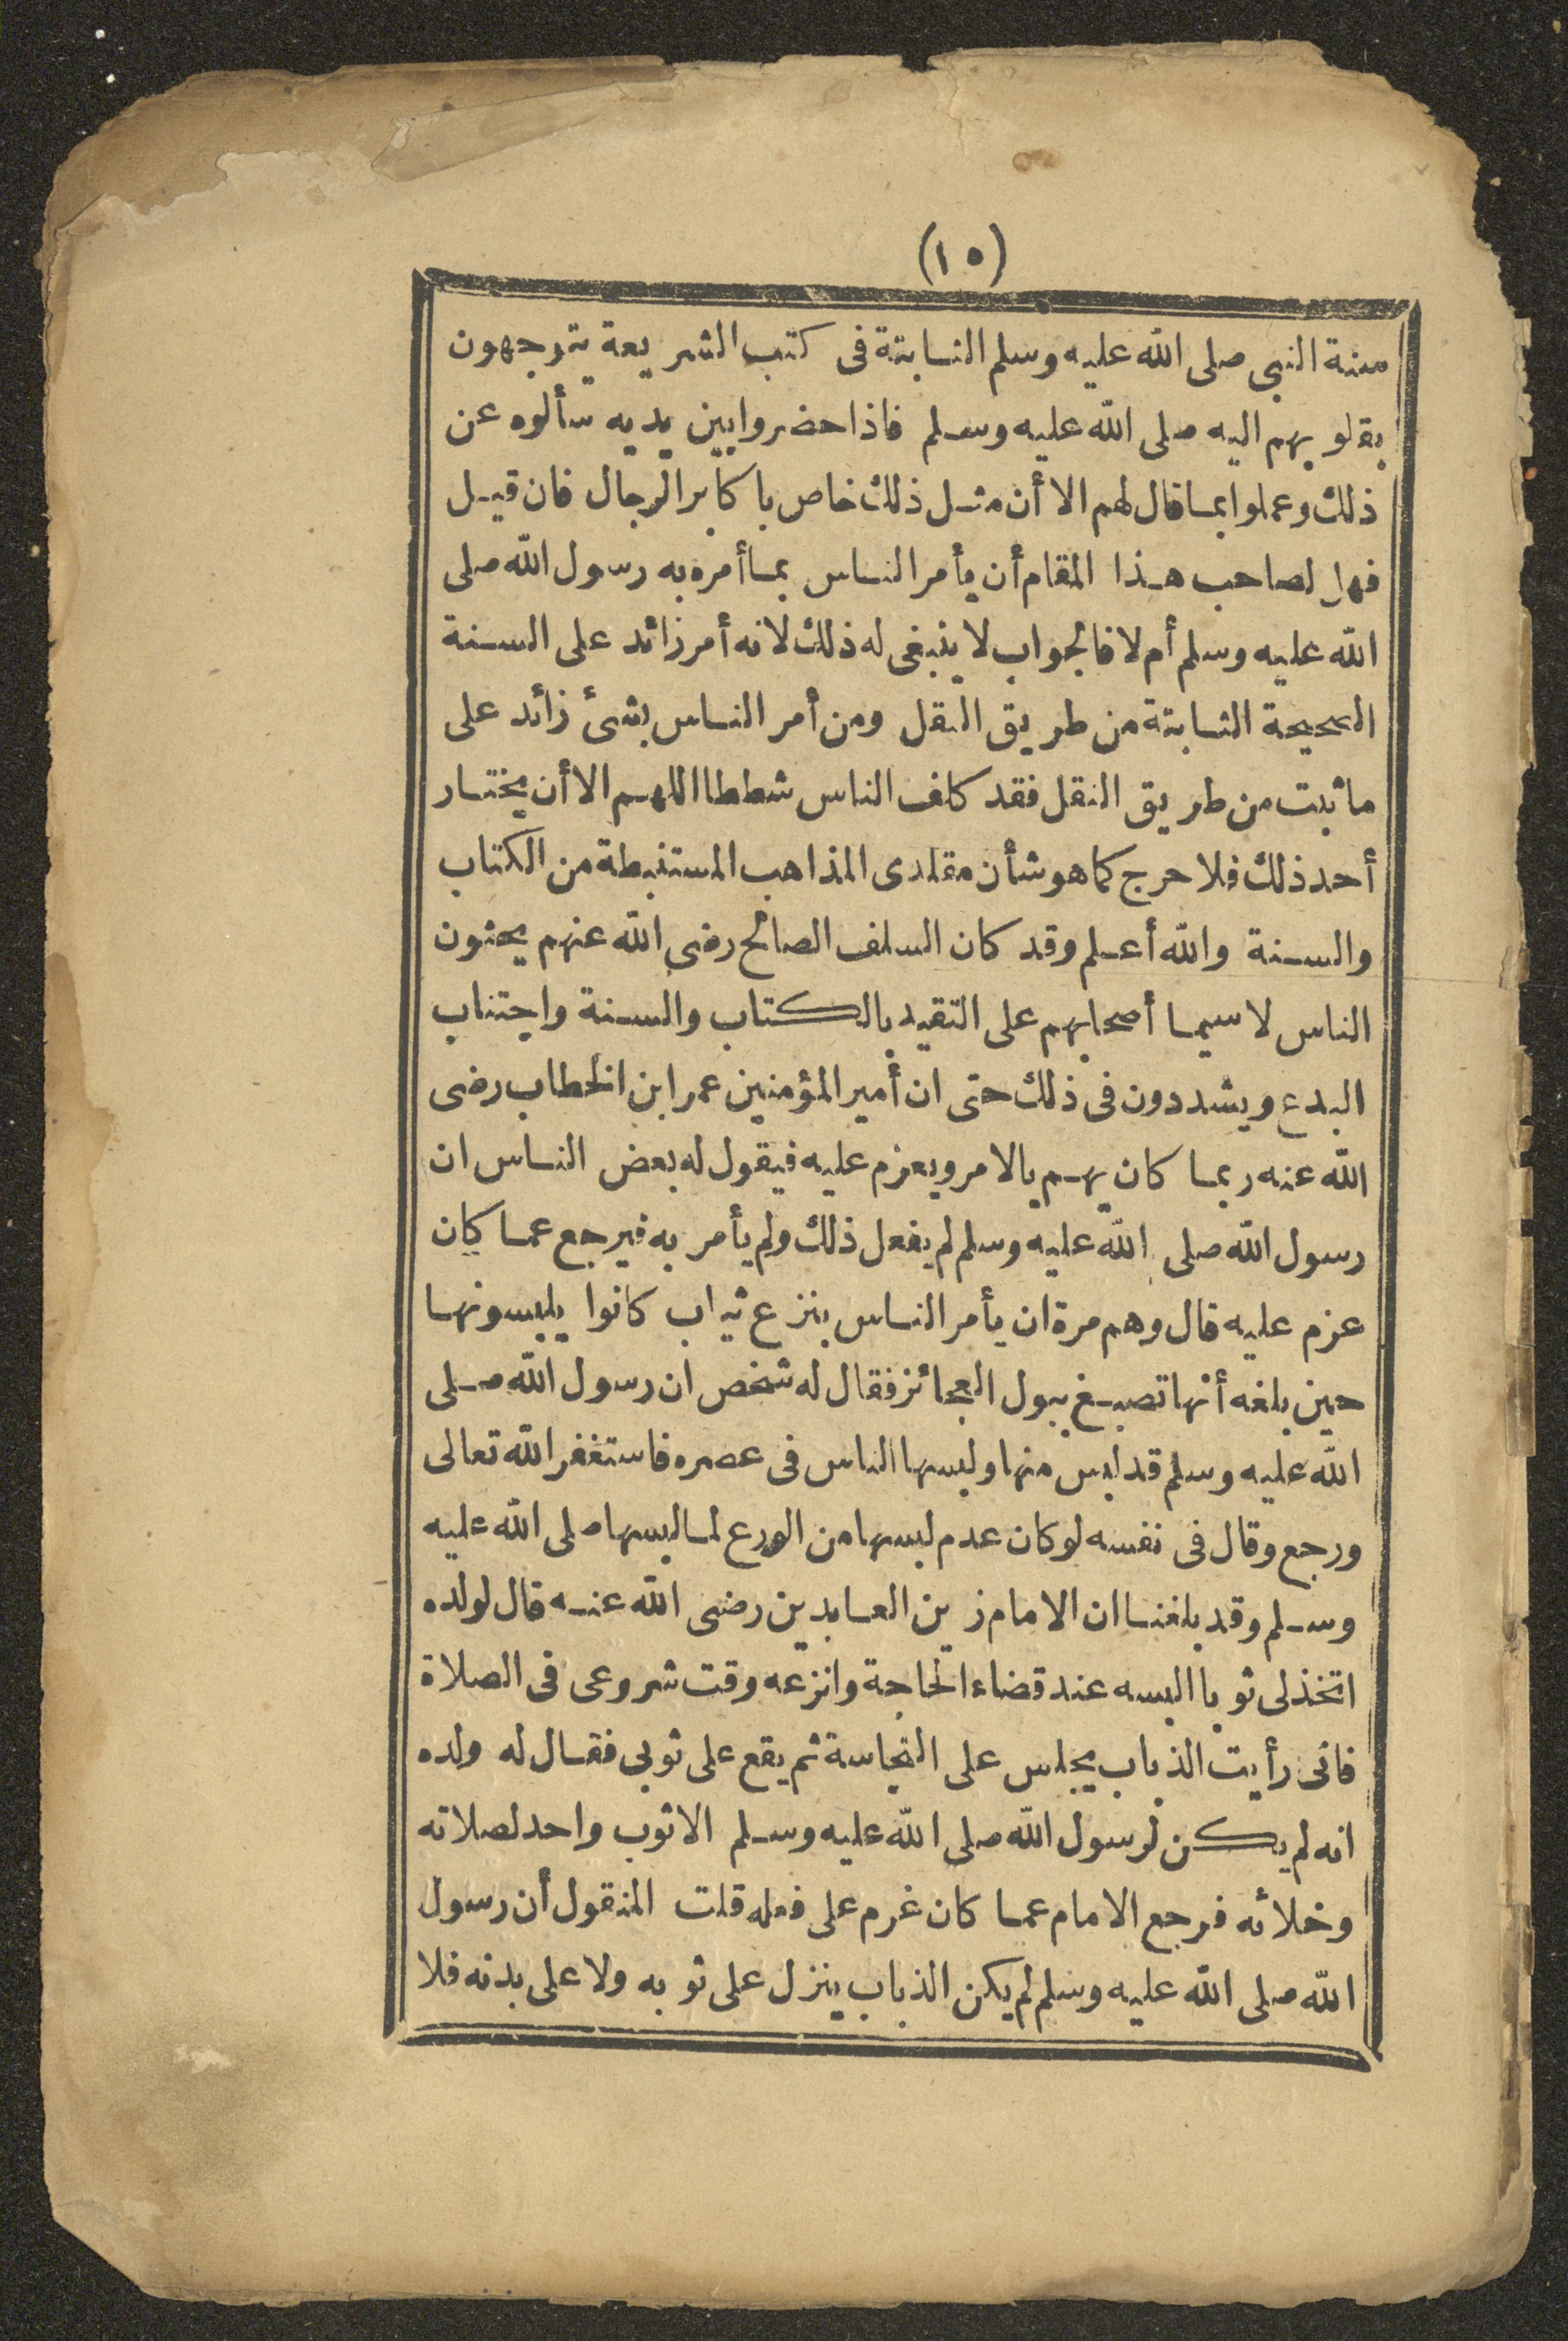 (١٥)
سنة النبى صلى الله عليه وسلم الثابتة فى كتب الشريعة يتوجهون
بقلوبهم اليه صلى الله عليه وسلم فاذا حضروا بين يديه سألوه عن
ذلك وعملوا بما قال لهم الا أن مثل ذلك خاص باكابر الرجال فان قيل
فهل لصاحب هذا المقام أن يأمر الناس بما أمره به رسول الله صلى
الله عليه وسلم أم لا فالجواب لا ينبغى له ذلك لانه أمر زائد على السنة
الصحيحة الثابتة من طريق النقل ومن أمر الناس بشئ زائد على
ما ثبت من طريق النقل فقد كلف الناس شططا اللهم الا أن يختار
أحد ذلك فلا حرج كما هو شأن مقلدى المذاهب المستنبطة من الكتاب
والسنة والله أعلم وقد كان السلف الصالح رضى الله عنهم يحثون
الناس لا سيما أصحابهم على التقيد بالكتاب والسنة واجتناب
البدع ويشددون فى ذلك حتى ان أمير المؤمنين عمر ابن الخطاب رضى
الله عنه ربما كان يهم بالامر ويعزم عليه فيقول له بعض الناس ان
رسول الله صلى الله عليه وسلم لم يفعل ذلك ولم يأمر به فيرجع عما كان
عزم عليه قال وهم مرة ان يأمر الناس بنزع ثياب كانوا يلبسونها
حين بلغه أنها تصبغ ببول العجائز فقال له شخص ان رسول الله صلى
الله عليه وسلم قد لبس منها ولبسها الناس فى عصره فاستغفر الله تعالى
ورجع وقال فى نفسه لو كان عدم لبسها من الورع لما لبسها صلى الله عليه
وسلم وقد بلغنا ان الامام زين العابدين رضى الله عنه قال لولده
اتخذ لى ثوبا البسه عند قضاء الحاجة وانزعه وقت شروعى فى الصلاة
فانى رأيت الذباب يجلس على النجاسة ثم يقع على ثوبى فقال له ولده
انه لم يكن لرسول الله صلى الله عليه وسلم الا ثوب واحد لصلاته
وخلائه فرجع الامام عما كان غرم على فعله قلت المنقول أن رسول
الله صلى الله عليه وسلم لم يكن الذباب ينزل على ثوبه ولا على بدنه فلا